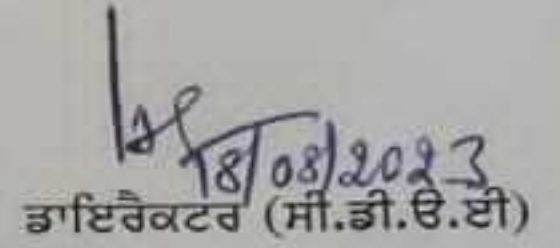 18/08/2023
ਡਾਇਰੈਕਟਰ (ਸੀ.ਡੀ.ਓ.ਈ)